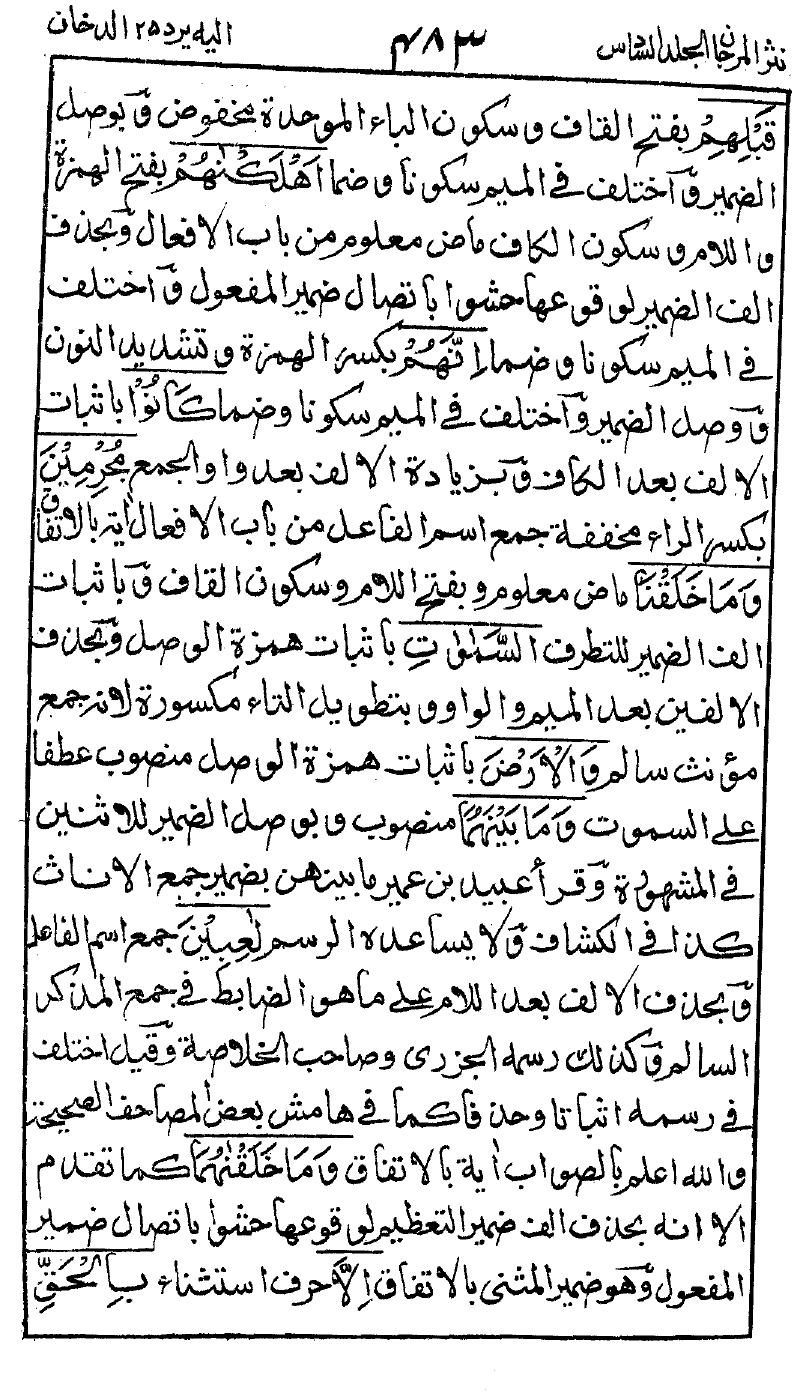 نثر المرجان الجلد السادس ۴۸۳ اليه يرد ۲۵ الدخان
قَبْلِهِمْ بفتح القاف وسكون الباء الموحدة مخفوض وبوصل
الضمير واختلف في الميم سكونا وضما اَهْلَكْنٰهُمْ بفتح الهمزة
واللام وسكون الكاف ماض معلوم من باب الافعال وبحذف
الف الضمير لوقوعها حشوا باتصال ضمير المفعول واختلف
في الميم سكونا وضما اِنَّهُمْ بكسر الهمزة وتشديد النون
ووصل الضمير واختلف في الميم سكونا وضما كَانُوْا باثبات
الالف بعد الكاف وبزيادة الالف بعد واو الجمع مُجْرِمِيْنَ
بكسر الراء مخففة جمع اسم الفاعل من باب الافعال اٰية بالاتفاق
وَمَا خَلَقْنَا ماض معلوم وبفتح اللام وسكون القاف وباثبات
الف الضمير للتطرف السَّمٰوٰتِ باثبات همزة الوصل وبحذف
الالفين بعد الميم والواو وبتطويل التاء مكسورة لانه جمع
مؤنث سالم وَالْاَرْضَ باثبات همزة الوصل منصوب عطفا
على السموت وَمَا بَيْنَهُمَا منصوب وبوصل الضمير للاثنين
في المشهورة وقرأ عبيد بن عمير ما بينهن بضمير جمع الاناث
كذا في الكشاف ولا يساعده الرسم لٰعِبِيْنَ جمع اسم الفاعل
وبحذف الالف بعد اللام على ما هو الضابط في جمع المذكر
السالم وكذلك رسمه الجزرى وصاحب الخلاصة وقيل اختلف
في رسمه اثباتا وحذفا كما في هامش بعض المصاحف الصحيحة
والله اعلم بالصواب اٰية بالاتفاق وَمَا خَلَقْنٰهُمَا كما تقدم
الا انه بحذف الف ضمير التعظيم لوقوعها حشوا باتصال ضمير
المفعول وهو ضمير المثنى بالاتفاق اِلَّا حرف استثناء بِالْحَقِّ